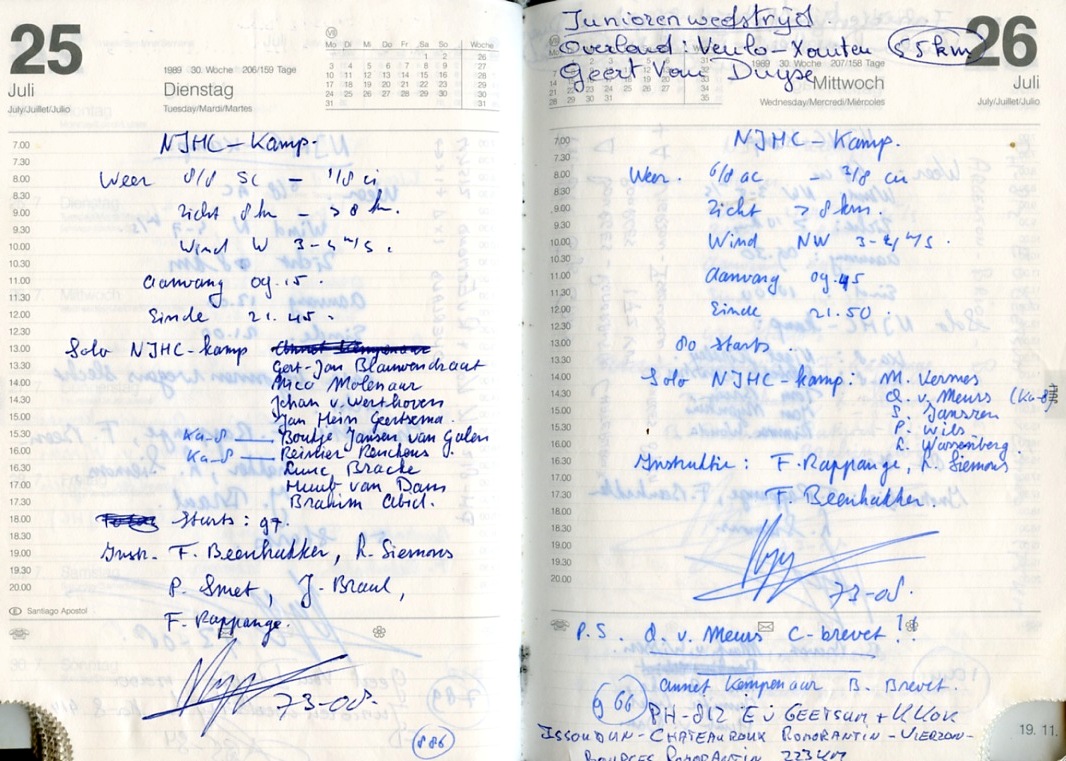 25
Juli
July/Juillet/Julio
1989 30. Woche 206/159 Tage
Dienstag
Tuesday/Mardi/Martes
Mo Di Mi Do Fr Sa So Woche
1 2 26
3 4 5 6 7 8 9 27
10 11 12 13 14 15 16 28
17 18 19 20 21 22 23 29
24 25 26 27 28 29 30 30
31 31
NJHC-Kamp.
Weer 8/8 SC - 1/8 ci
Zicht 8 km - > 8 km.
Wind W 3-5 m/s.
Aanvang 09.15.
Einde 21.45.
Solo NJHC-kamp
Gert-Jan Blauwendraat
Nico Molenaar
Johan v. Werthoven
Jan Hein Geertsema.
Ka-8 Boutje Jansen van Galen
Ka-8 Reinier
Luuc Bracke
Huub van Dam
Brahim Abid.
Starts: 97.
Instr. F. Beenhakker, R. Siemons
P. Smet, J. Braul,
F. Rappange.
73-08.
886
7.00
7.30
8.00
8.30
9.00
9.30
10.00
10.30
11.00
11.30
12.00
12.30
13.00
13.30
14.00
14.30
15.00
15.30
16.00
16.30
17.00
17.30
18.00
18.30
19.00
19.30
20.00
E Santiago Apostol
Juniorenwedstrijd.
Overland: Venlo-Xanten 55 km
Geert van Duyse
26
Juli
July/Juillet/Julio
1989 30. Woche 207/158 Tage
Mittwoch
Wednesday/Mercredi/Miércoles
NJHC-Kamp.
Weer. 6/8 ac - 2/8 cu
Zicht > 8 km.
Wind NW 3-4 m/s.
Aanvang 09.45
Einde 21.50.
80 Starts.
Solo NJHC-kamp: M. Vermes
Q. v. Meurs (Ka-8)
S. Janssen
P. Wils
R. Wassenberg.
Instruktie: F. Rappange, R. Siemons
F. Beenhakker.
73-08.
7.00
7.30
8.00
8.30
9.00
9.30
10.00
10.30
11.00
11.30
12.00
12.30
13.00
13.30
14.00
14.30
15.00
15.30
16.00
16.30
17.00
17.30
18.30
19.00
19.30
20.00
P.S. Q. v. Meurs C-brevet!!
Annet Kempenaar B. Brevet.
966
PH-812 E v GEETSUM + K KOK
ISSOUDUN-CHATEAUROUX ROMORANTIN-VIERZON-
BOURGES ROMORANTIN 223 KM
19. 11.